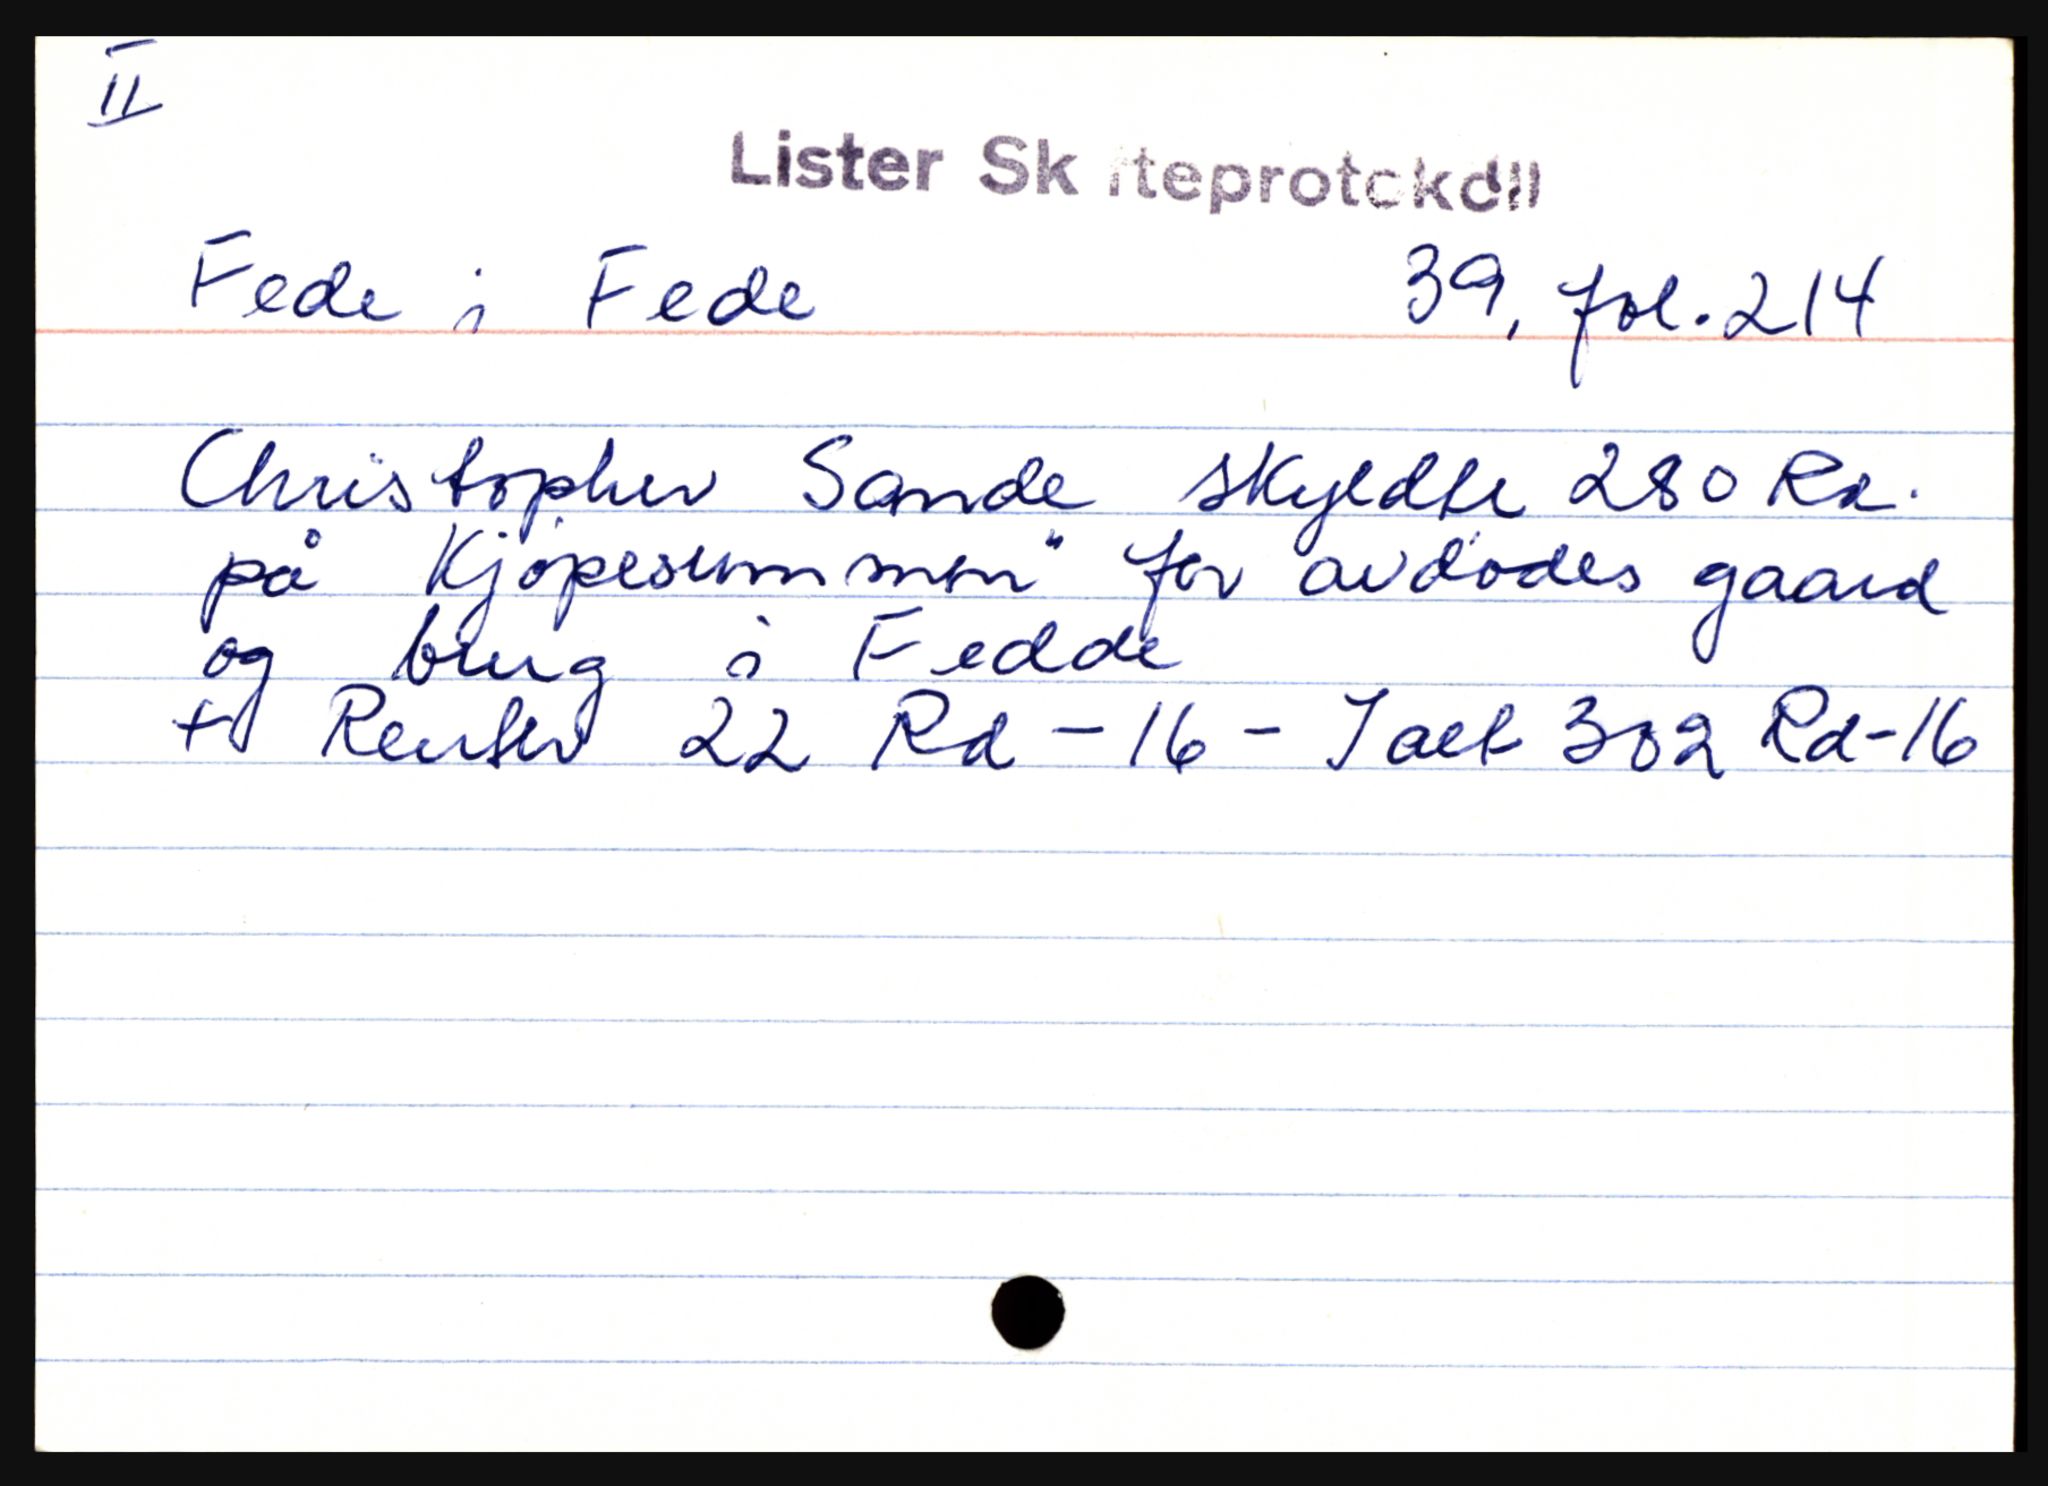 II
Lister Skifteprotokoll
Fede i Fede 39, fol. 214
Christopher Sande skyldte 280 Rd.
på Kjöpesummen" for avdödes gaard
og brug i Fedde
+ Renter 22 Rd - 16 - I alt 302 Rd-16